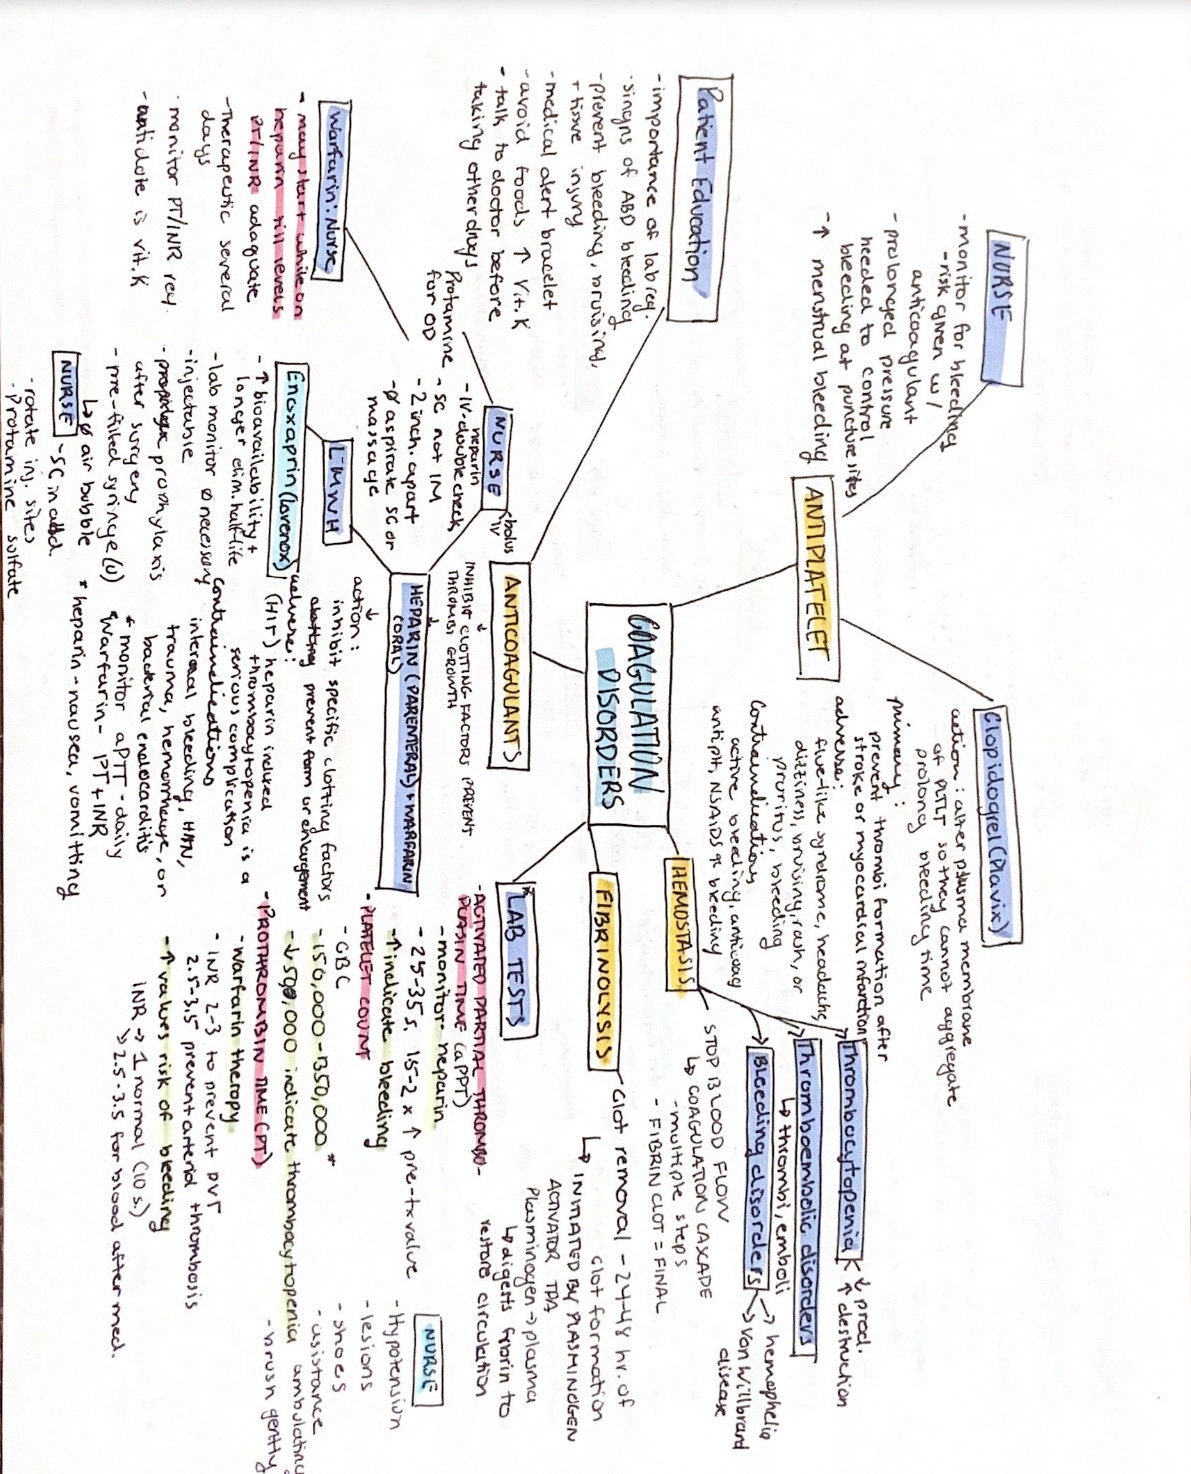 COAGULATION
DISORDERS
ANTIPLATELET
NURSE
-monitor for bleeding
-risk given w/
anticoagulant
-prolonged pressure
needed to control
bleeding at puncture sites
-↑ menstrual bleeding
Clopidogrel (Plavix)
action: alter plasma membrane
of PLTLT so they cannot aggregate
prolong bleeding time
primary:
prevent thrombi formation after
stroke or myocardial infarction
adverse:
flu-like syndrome, headache,
dizziness, bruising, rash, or
pruritus, bleeding
Contraindications
active bleeding, anticoag
antiplt, NSAIDS ↑ bleeding
ANTICOAGULANTS
↓
INHIBIT CLOTTING FACTORS PREVENT
THROMBI GROWTH
Patient Education
-importance of lab req.
-singns of ABD bleeding
-prevent bleeding, bruising,
+ tissue injury
-medical alert bracelet
-avoid foods ↑ Vit. K
-talk to doctor before
taking other drugs
HEPARIN (PARENTERAL) + WARFARIN
(ORAL)
NURSE
bolus
IV
heparin
-IV-double check
-SC not IM
-2 inch. apart
-Ø aspirate SC or
massage
Protamine
for OD
Warfarin: Nurse
-may start while on
heparin till levels
PT/INR adequate
-Therapeutic several
days
-monitor PT/INR req.
-antidote is vit. K
LMWH
Enoxaprin (lovenox)
-↑ bioavailability +
longer elim. half-life
-lab monitor Ø necessary
-injectable
-prophylaxis
after surgery
-pre-filled syringe (U)
↳ Ø air bubble
NURSE -SC in abd.
-rotate inj. sites
-protamine sulfate
action:
↓
inhibit specific clotting factors
prevent form or enlargement
adverse:
(HIT) heparin induced
thrombocytopenia is a
serious complication
contraindications
internal bleeding, HTN,
trauma, hemorrhage, or
bacterial endocarditis
* monitor aPTT - daily
*Warfarin - PT + INR
*heparin - nausea, vomitting
*LAB TESTS
-ACTIVATED PARTIAL THROMBO-
PLASIN TIME (aPPT)
-monitor heparin
-25-35s, 1.5-2 x ↑ pre-tx value
-↑ indicate bleeding
-PLATELET COUNT
-CBC
-150,000-350,000 *
-↓ 50,000 indicate thrombocytopenia
-PROTHROMBIN TIME (PT)
-warfarin therapy
-INR 2-3 to prevent DVT
2.5-3.5 prevent arterial thrombosis
-↑ values risk of bleeding
INR → 1 normal (10 s.)
↳ 2.5-3.5 for blood after med.
NURSE
-Hypotension
-lesions
-shoes
-assistance
ambulating
-brush gently
FIBRINOLYSIS
Clot removal - 24-48 hr. of
clot formation
↳ INITIATED BY PLASMINOGEN
ACTIVATOR TPA
Plasminogen → plasma
↳ digests fibrin to
restore circulation
HEMOSTASIS
STOP BLOOD FLOW
↳ COAGULATION CASCADE
-multiple steps
-FIBRIN CLOT = FINAL
Thrombocytopenia
↓ prod.
↑ destruction
Thromboembolic disorders
↳ thrombi, emboli
Bleeding disorders
→ hemophelia
→ Von Willbrand
disease